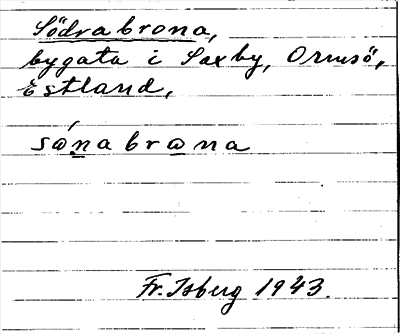 Södra brona,
bygata i Saxby, Ormsö,
Estland,
sǿnabrøna
Fr. Isberg 1943.